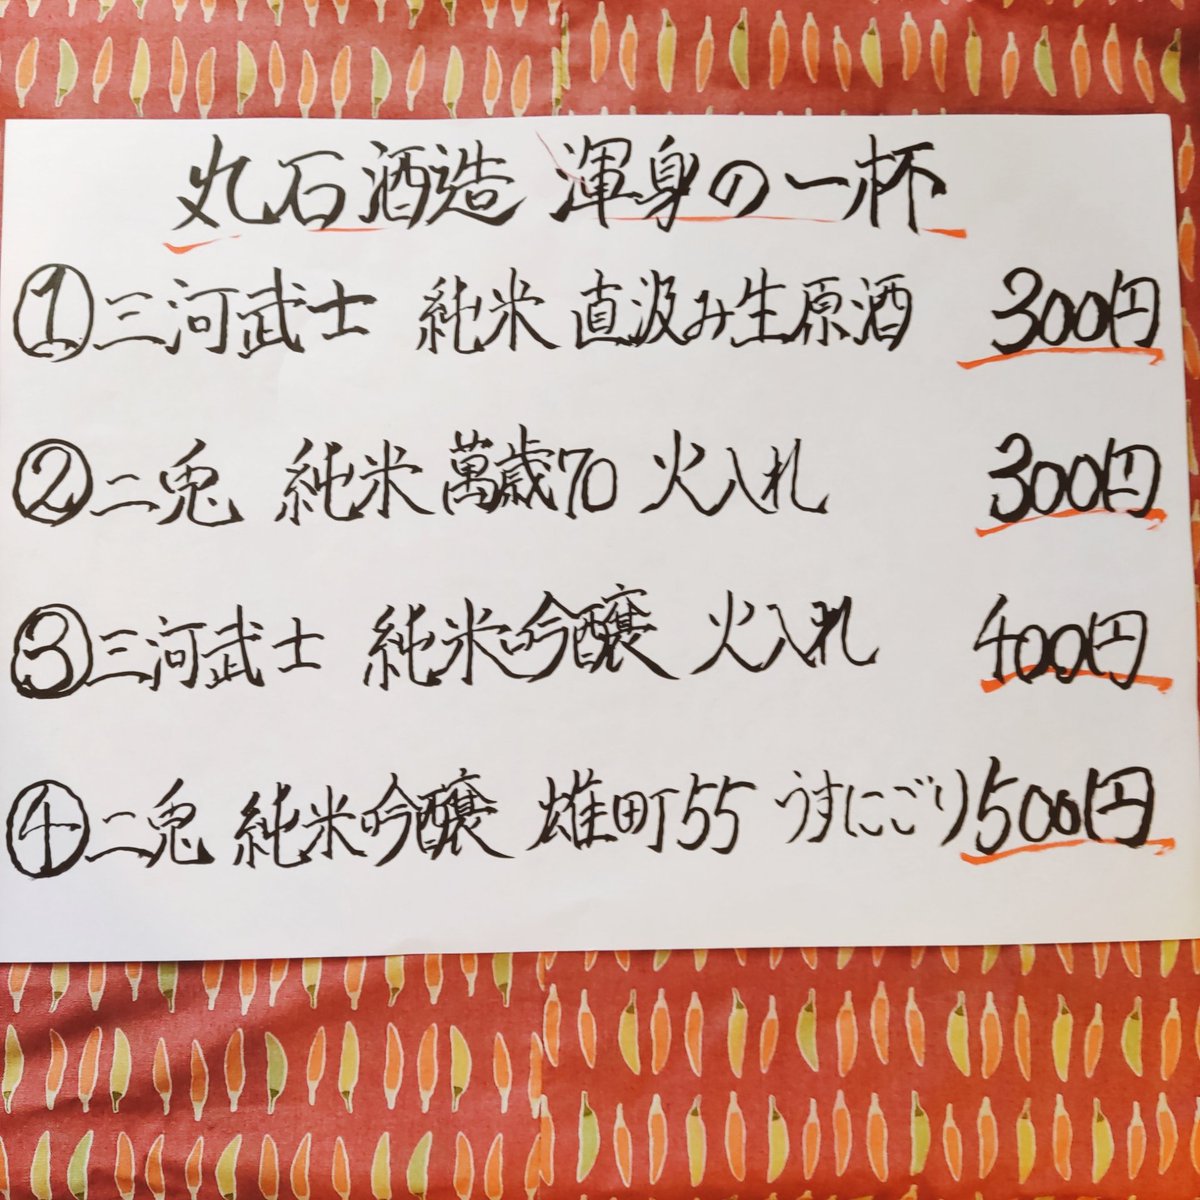 丸石酒造 渾身の一杯
①三河武士 純米 直汲み生原酒 300円
②二兎 純米 萬歳70 火入れ 300円
③三河武士 純米吟醸 火入れ 400円
④二兎 純米吟醸 雄町55 うすにごり 500円